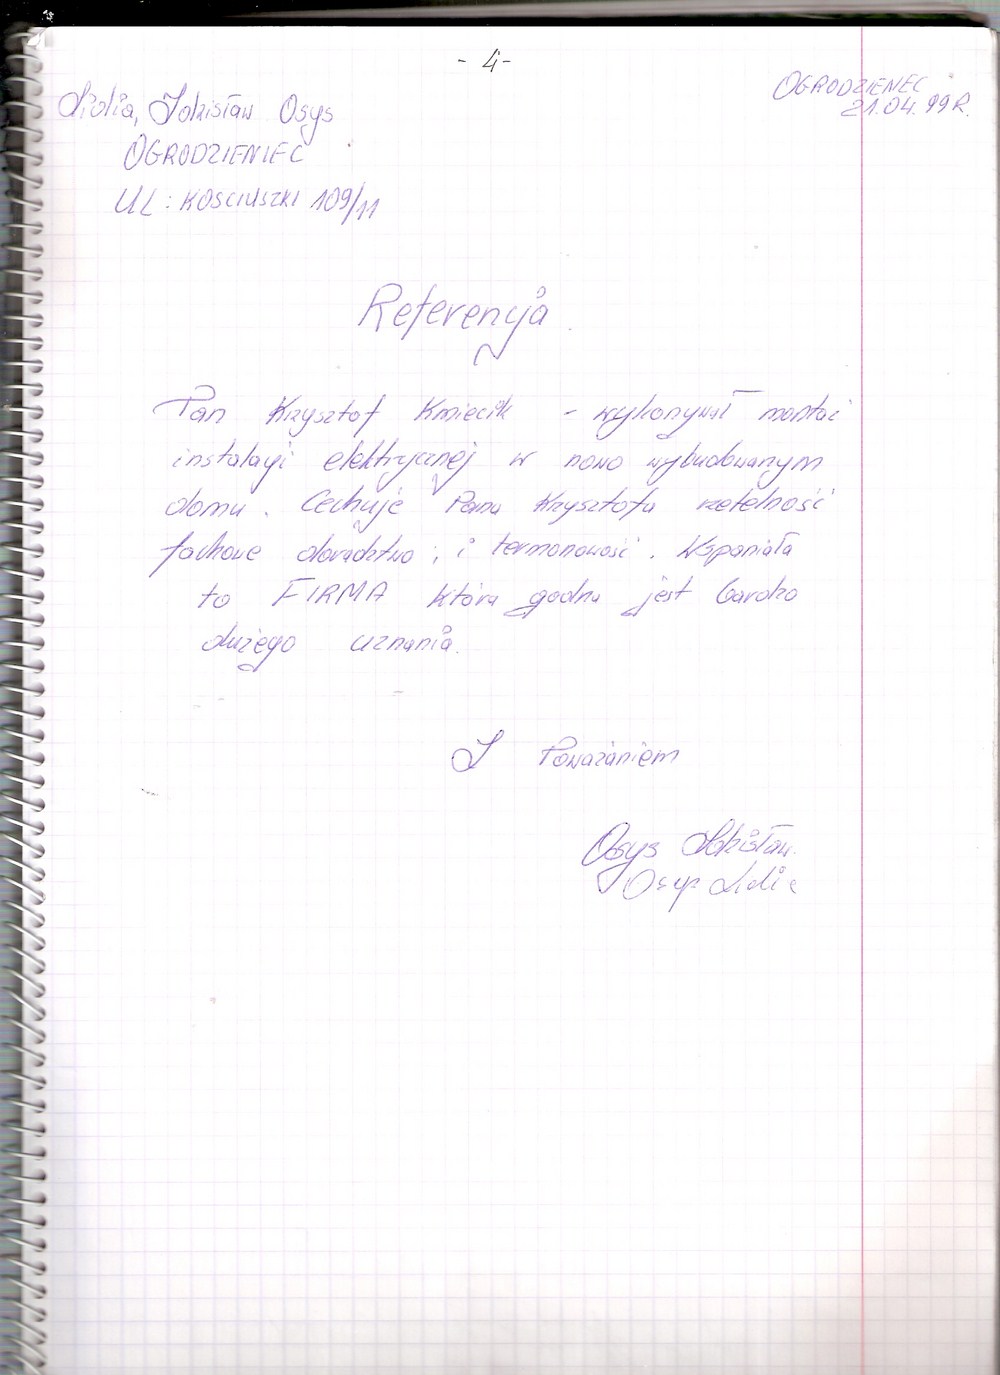 - 4 -
OGRODZIENIEC
21.04.99R.
Lidia, Zdzisław Osys
OGRODZIENIEC
UL: KOSCIUSZKI 109/11
Referencja
Pan Krzysztof Kmiecik - wykonywał montaż
instalacji elektrycznej w nowo wybudowanym
domu. Cechuje Pana Krzysztofa rzetelność
fachowe doradztwo, i termonowość. Wspaniała
to FIRMA która godna jest bardzo
dużego uznania.
Z Poważaniem
Osys Zdzisław.
Osys Lidia